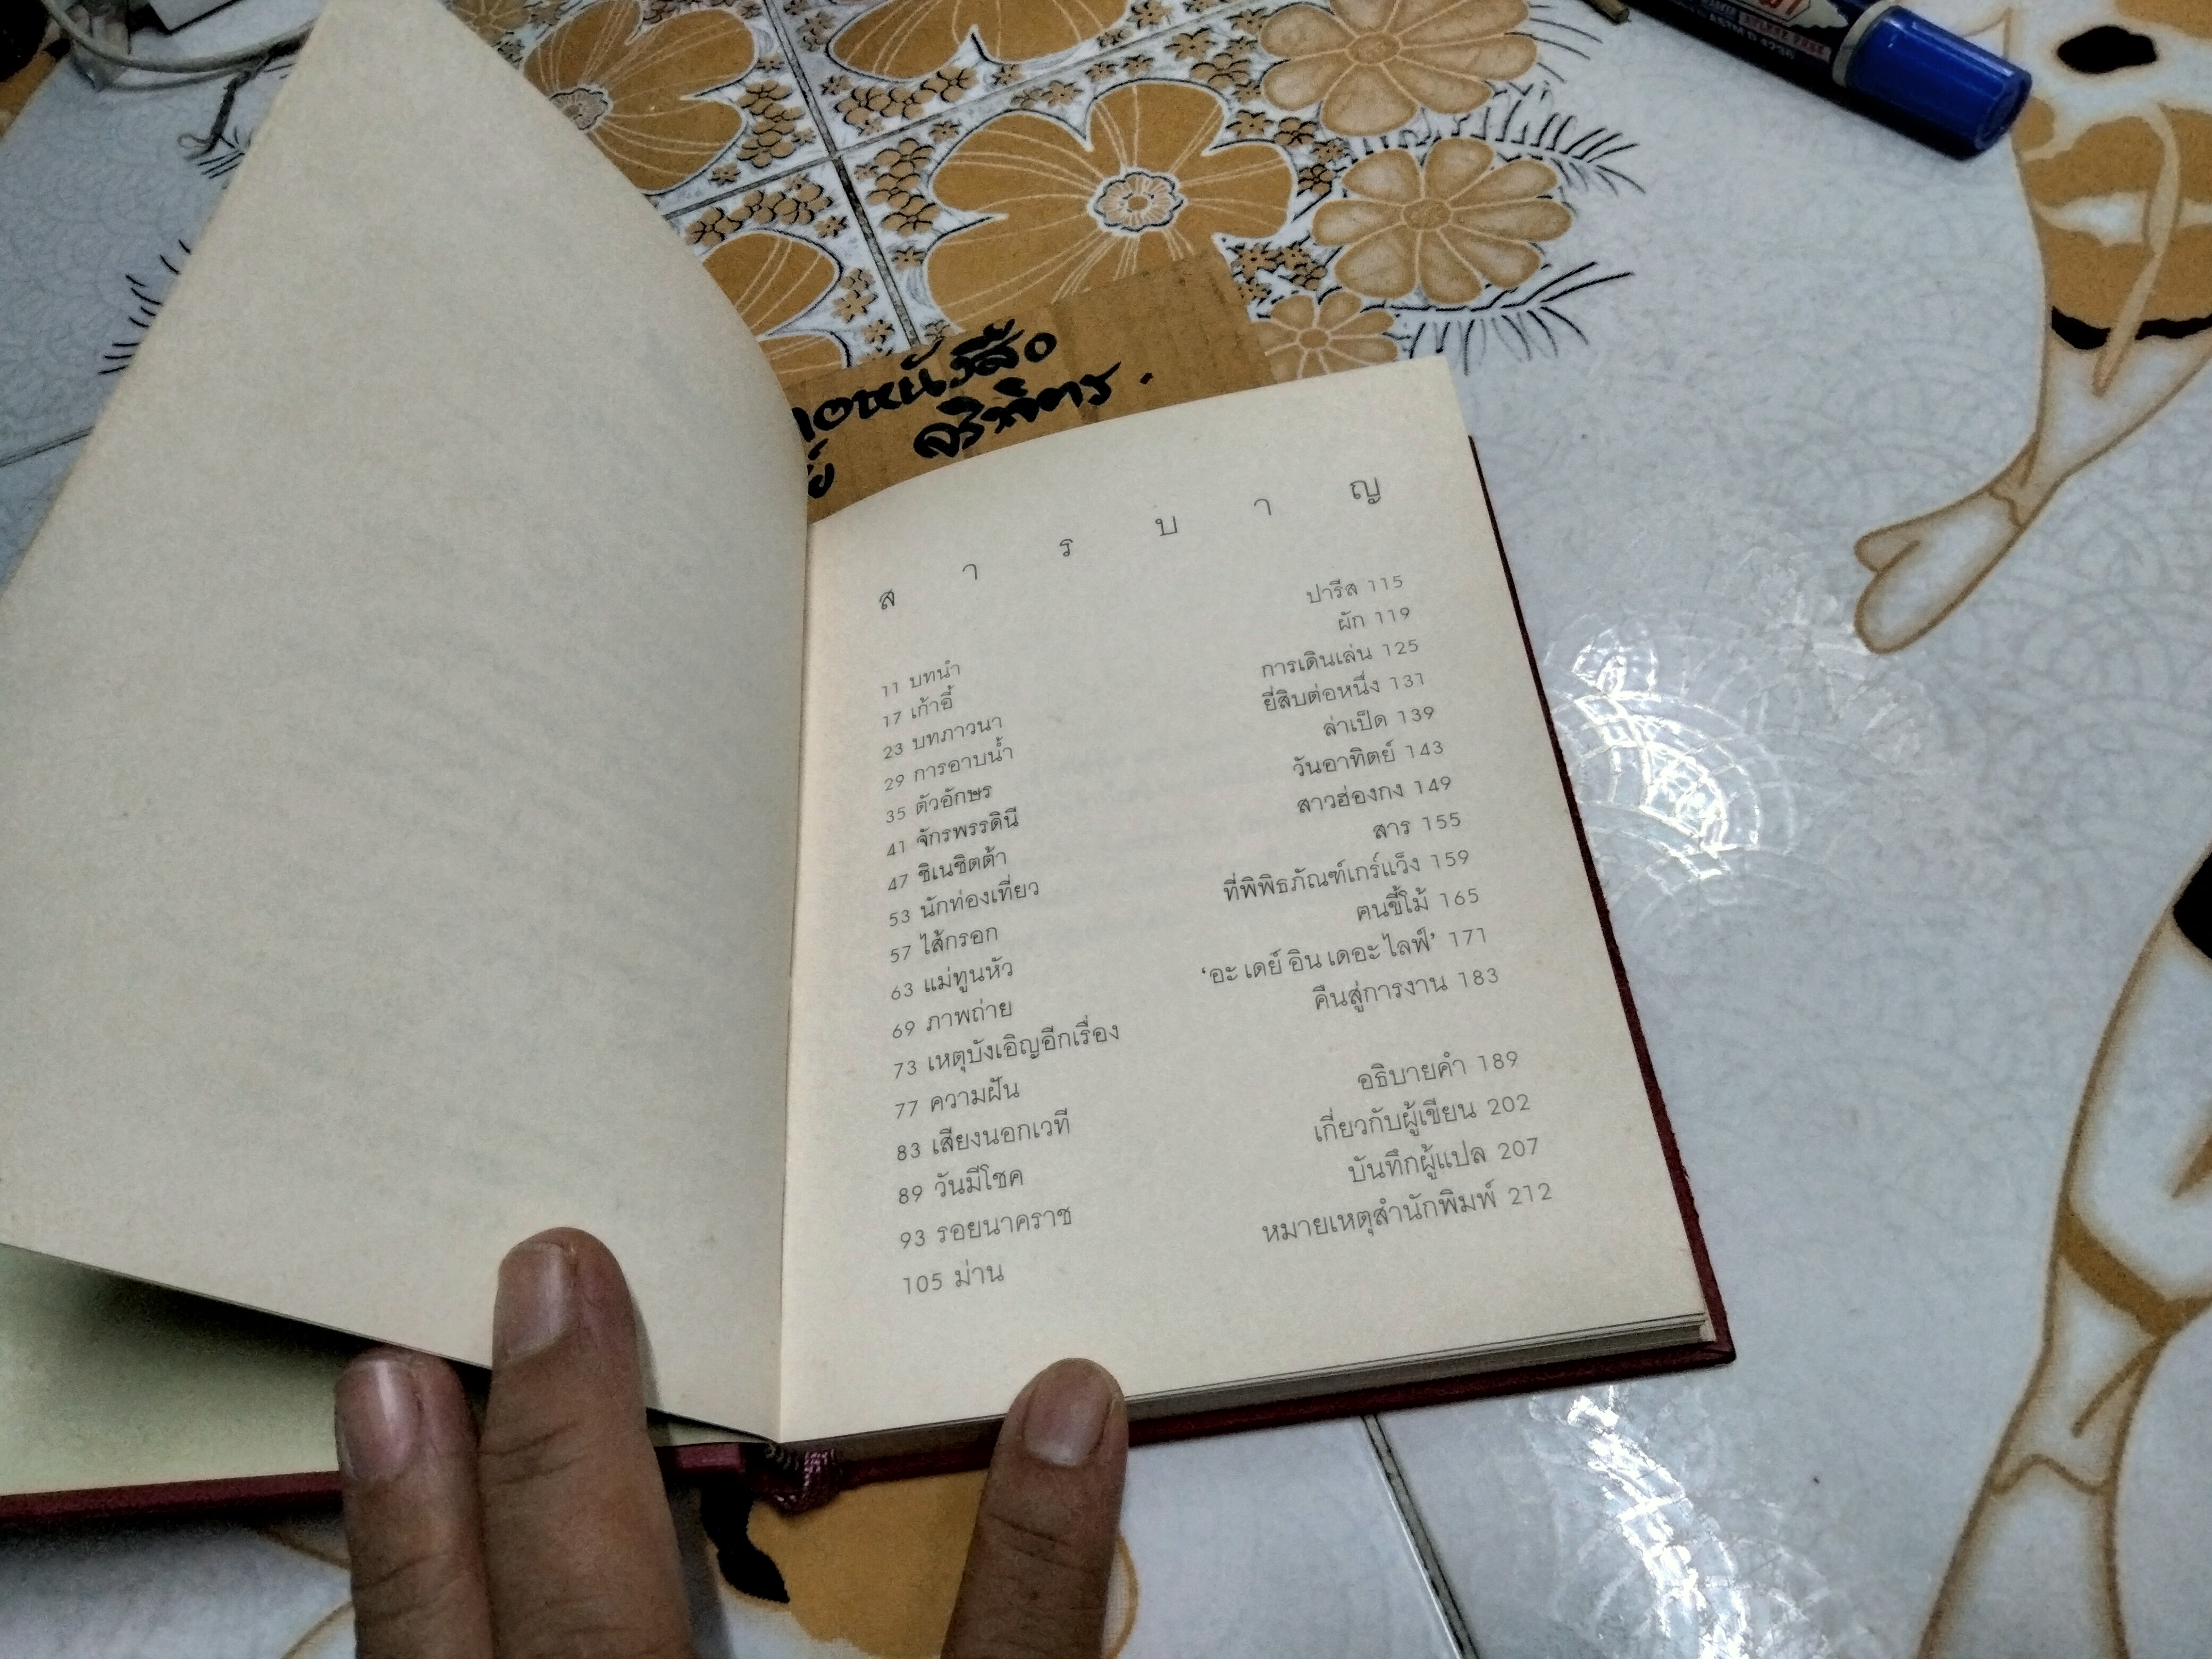 หนังสือ
ส า ร บ า ญ
11 บทนำ
17 เก้าอี้
23 บทภาวนา
29 การอาบน้ำ
35 ตัวอักษร
41 จักรพรรดินี
47 ชิเนชิตต้า
53 นักท่องเที่ยว
57 ไส้กรอก
63 แม่ทูนหัว
69 ภาพถ่าย
73 เหตุบังเอิญอีกเรื่อง
77 ความฝัน
83 เสียงนอกเวที
89 วันมีโชค
93 รอยนาคราช
105 ม่าน
ปารีส 115
ผัก 119
การเดินเล่น 125
ยี่สิบต่อหนึ่ง 131
ล่าเป็ด 139
วันอาทิตย์ 143
สาวฮ่องกง 149
สาร 155
ที่พิพิธภัณฑ์เกร์แว็ง 159
ฅนขี้โม้ 165
‘อะ เดย์ อิน เดอะ ไลฟ์’ 171
คืนสู่การงาน 183
อธิบายคำ 189
เกี่ยวกับผู้เขียน 202
บันทึกผู้แปล 207
หมายเหตุสำนักพิมพ์ 212